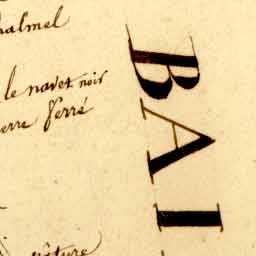 halmel
le navet noir
erre ferré
pâture
BAI